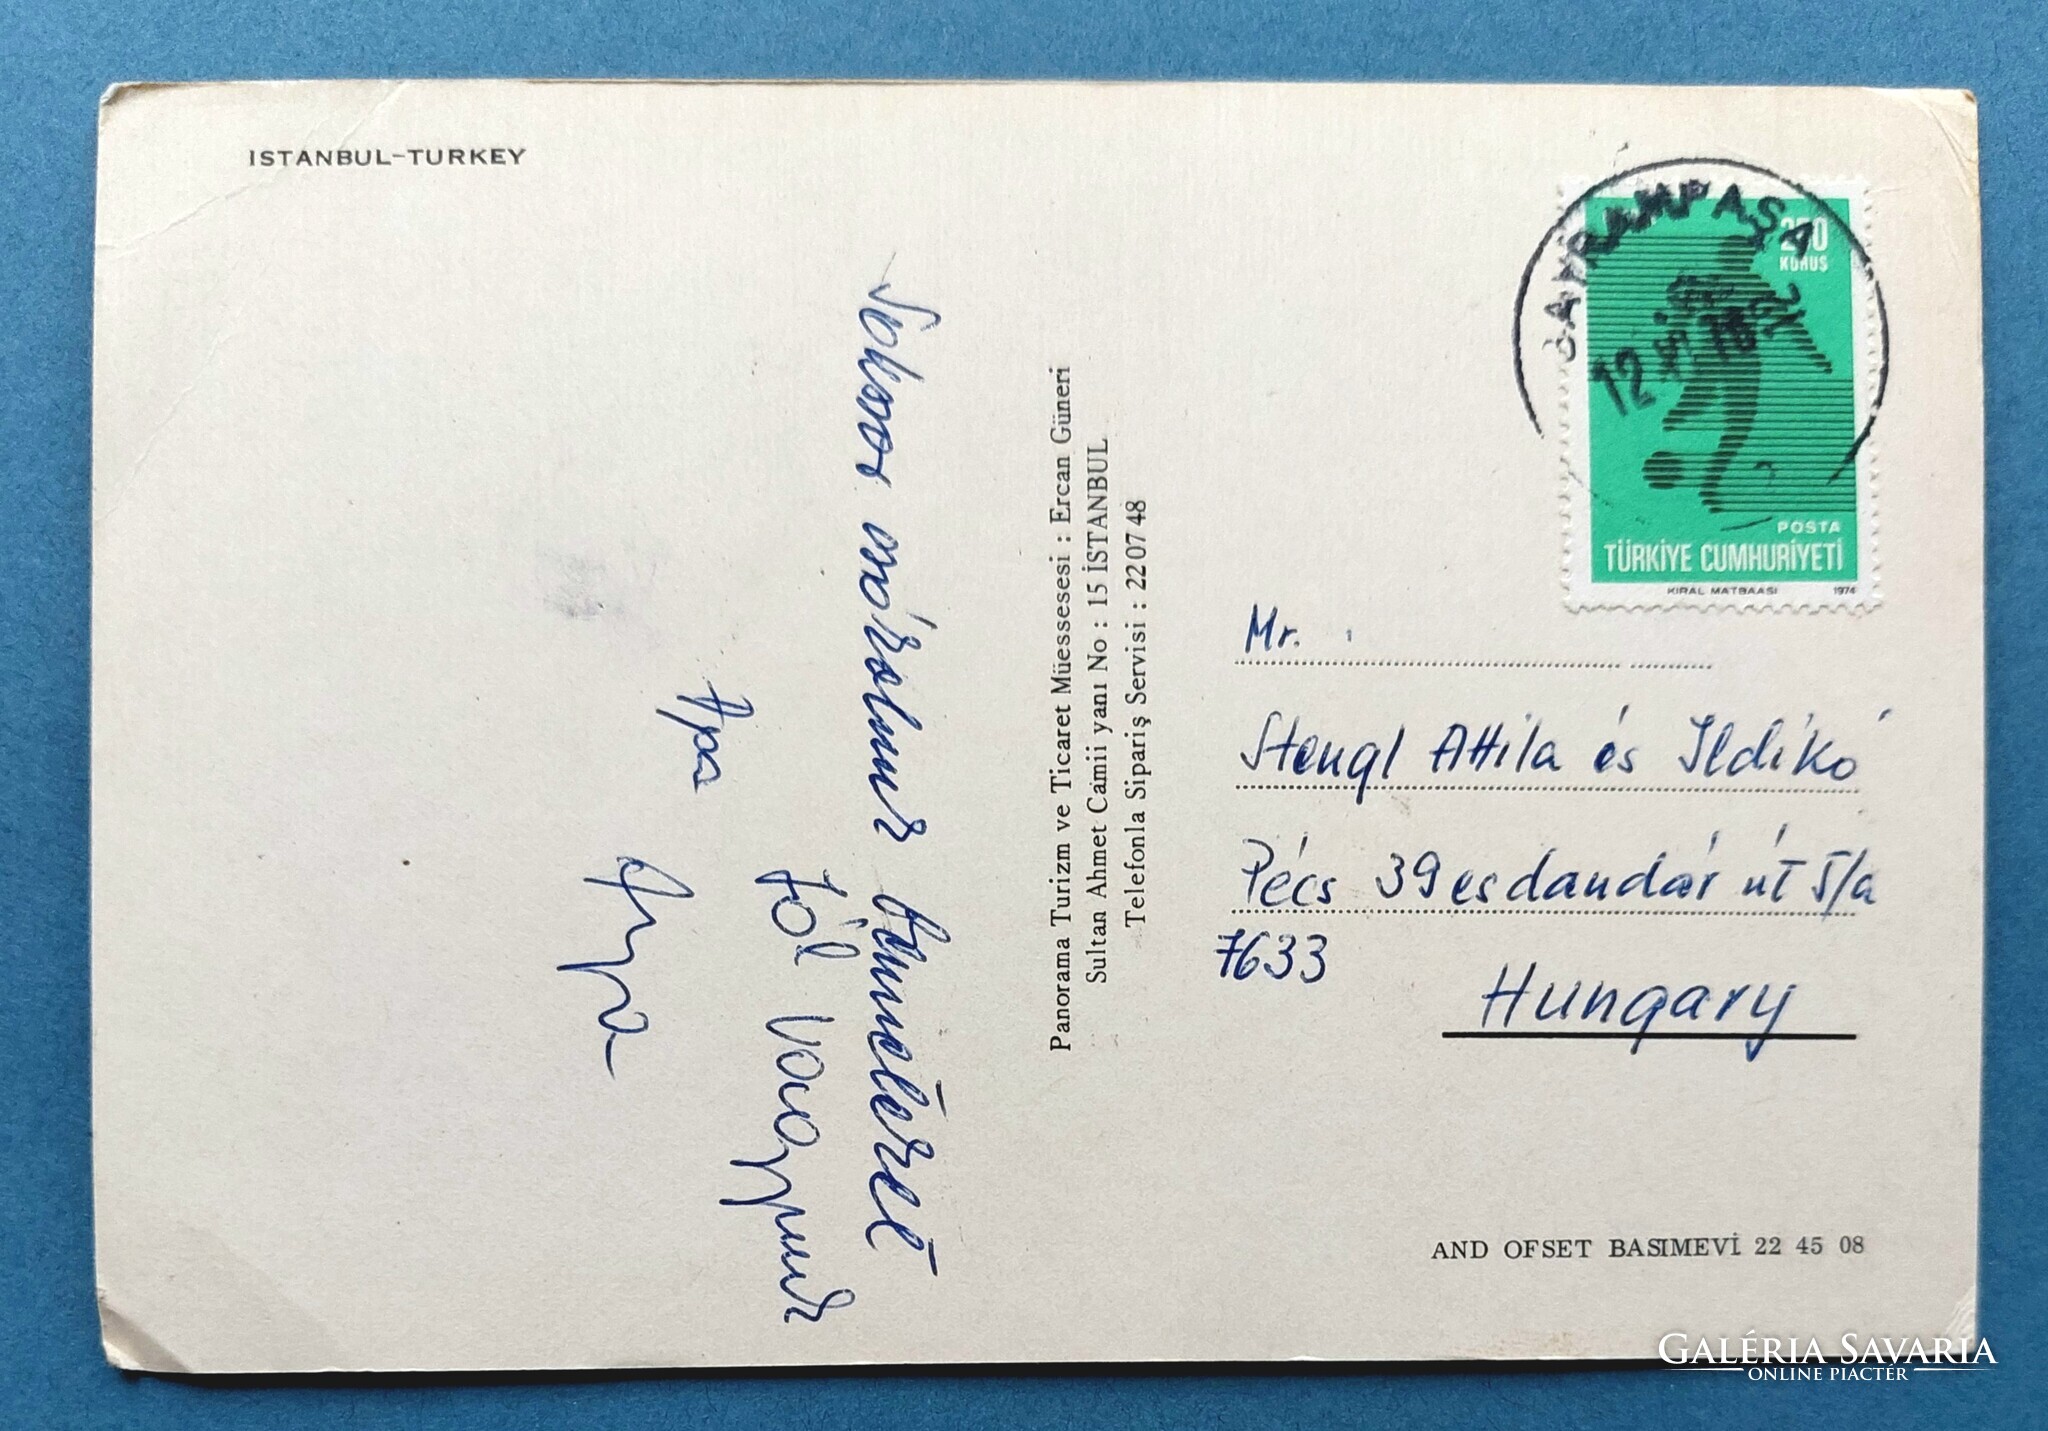 ISTANBUL-TURKEY
Sokszor
Jól vagyunk
Apa
Anya
Panorama Turizm ve Ticaret Müessesesi : Ercan Güneri
Sultan Ahmet Camii yanı No : 15 İSTANBUL
Telefonla Sipariş Servisi : 22 07 48
BAYRAMPAŞA
12
250
KURUŞ
POSTA
TÜRKİYE CUMHURİYETİ
KIRAL MATBAASI 1974
Mr.
Stengl Attila és Ildikó
Pécs 39es dandár út 5/a
7633
Hungary
AND OFSET BASIMEVİ 22 45 08
GALÉRIA SAVARIA
ONLINE PIACTÉR